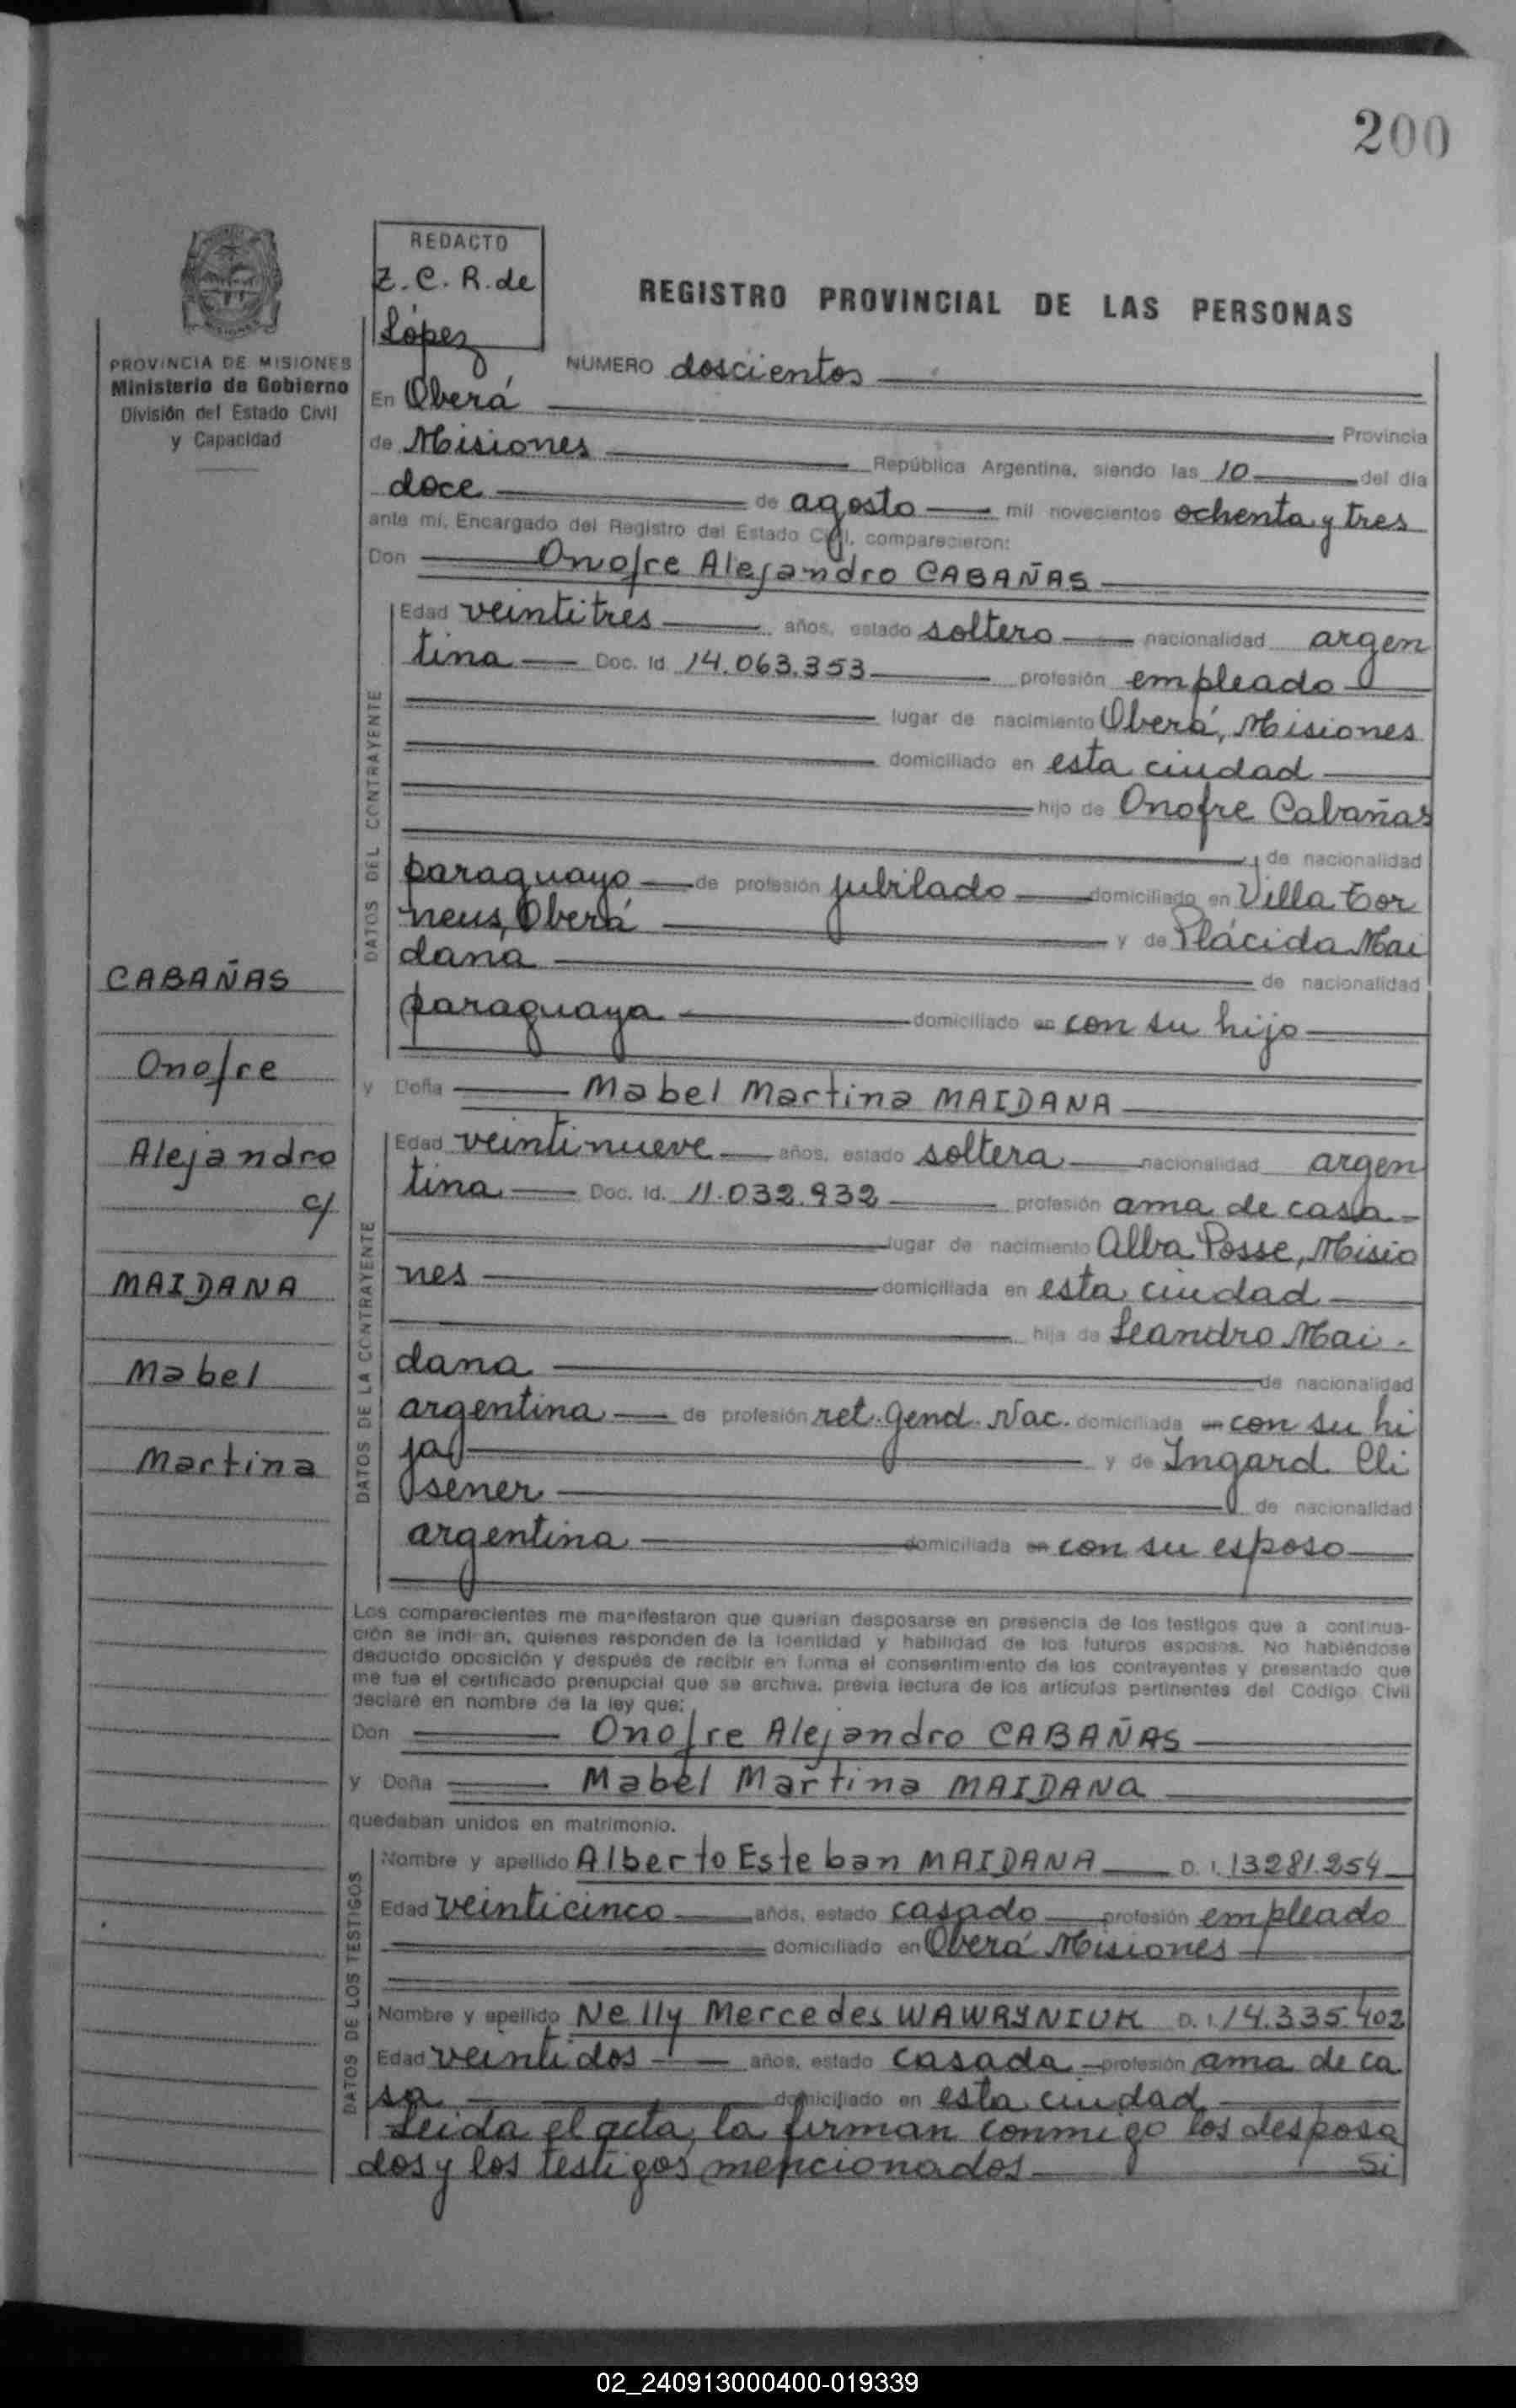 200
REDACTO
Z. C. R. de
López
REGISTRO PROVINCIAL DE LAS PERSONAS
PROVINCIA DE MISIONES
Ministerio de Gobierno
División del Estado Civil
y Capacidad
NUMERO doscientos
En Oberá
Provincia
de Misiones República Argentina, siendo las 10 del día
doce de agosto mil novecientos ochenta y tres
ante mí, Encargado del Registro del Estado Civil, comparecieron:
Don Onofre Alejandro CABAÑAS
DATOS DEL CONTRAYENTE
Edad veintitres años, estado soltero nacionalidad argen
tina Doc. Id. 14.063.353 profesión empleado
lugar de nacimiento Oberá, Misiones
domiciliado en esta ciudad
hijo de Onofre Cabañas
de nacionalidad
paraguayo de profesión jubilado domiciliado en Villa Tor
neus, Oberá y de Plácida Mai
dana de nacionalidad
paraguaya domiciliado en con su hijo
y Doña Mabel Martina MAIDANA
DATOS DE LA CONTRAYENTE
Edad veintinueve años, estado soltera nacionalidad argen
tina Doc. Id. 11.032.932 profesión ama de casa
lugar de nacimiento Alba Posse, Misio
nes domiciliada en esta ciudad
hija de Leandro Mai-
dana de nacionalidad
argentina de profesión ret. Gend. Nac. domiciliada en con su hi
ja y de Ingard Cli
sener de nacionalidad
argentina domiciliada en con su esposo
CABAÑAS
Onofre
Alejandro
c/
MAIDANA
Mabel
Martina
Los comparecientes me manifestaron que querían desposarse en presencia de los testigos que a continua-
ción se indican, quienes responden de la identidad y habilidad de los futuros esposos. No habiéndose
deducido oposición y después de recibir en forma el consentimiento de los contrayentes y presentado que
me fue el certificado prenupcial que se archiva, previa lectura de los artículos pertinentes del Código Civil
declaré en nombre de la ley que:
Don Onofre Alejandro CABAÑAS
y Doña Mabel Martina MAIDANA
quedaban unidos en matrimonio.
DATOS DE LOS TESTIGOS
Nombre y apellido Alberto Esteban MAIDANA D. I. 13281.254
Edad veinticinco años, estado casado profesión empleado
domiciliado en Oberá Misiones
Nombre y apellido Nelly Mercedes WAWRYNIUK D. I. 14.335.402
Edad veintidos años, estado casada profesión ama de ca
sa domiciliado en esta ciudad
Leida el acta, la firman conmigo los desposa
dos y los testigos mencionados Si
02_240913000400-019339